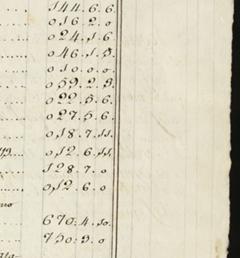 144.6.6.
016.2.0
024.1.6
046.1.5
010.0.0
059.2.3.
022.5.6
027.5.6
018.7.11.
012.6.11.
128.7.0
012.6.0
670.4.10.
750.5.0